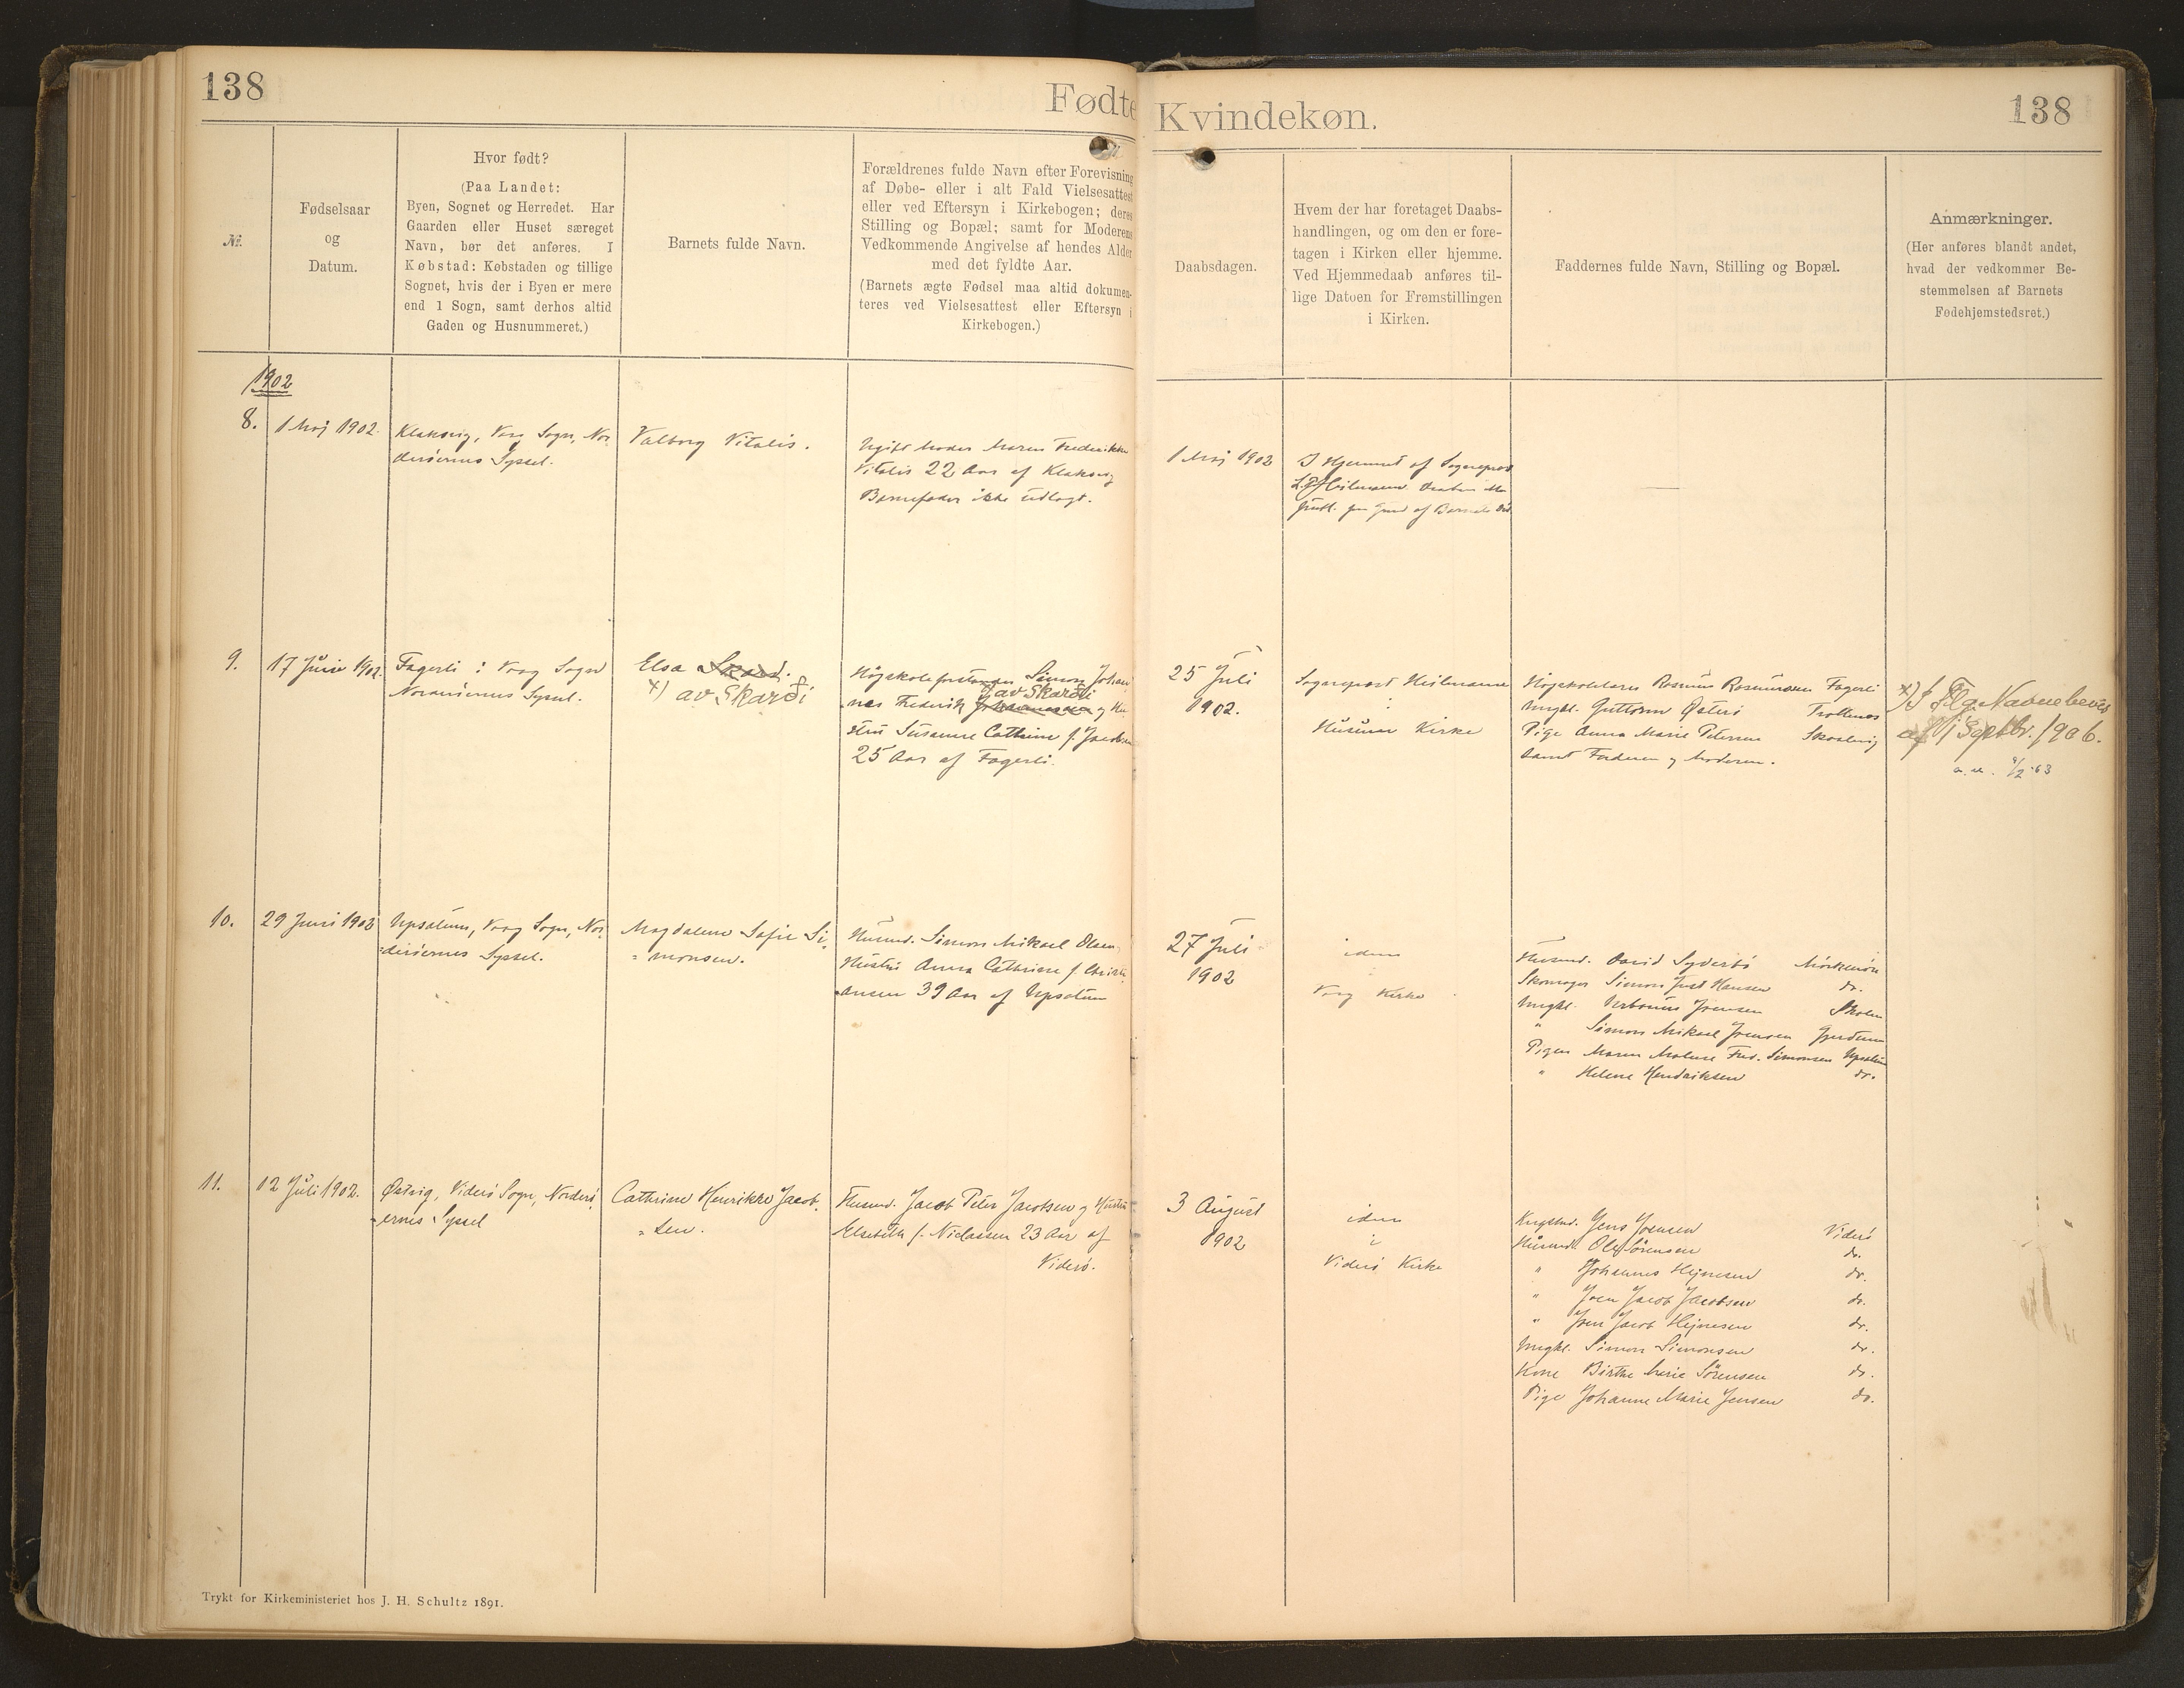 138
Fødte
Kvindekøn.
138
№.
Fødselsaar
og
Datum.
Hvor født?
(Paa Landet:
Byen, Sognet og Herredet. Har
Gaarden eller Huset særeget
Navn, bør det anføres. I
Købstad: Købstaden og tillige
Sognet, hvis der i Byen er mere
end 1 Sogn, samt derhos altid
Gaden og Husnummeret.)
Barnets fulde Navn.
Forældrenes fulde Navn efter Forevisning
af Døbe- eller i alt Fald Vielsesattest
eller ved Eftersyn i Kirkebogen; deres
Stilling og Bopæl; samt for Moderens
Vedkommende Angivelse af hendes Alder
med det fyldte Aar.
(Barnets ægte Fødsel maa altid dokumen-
teres ved Vielsesattest eller Eftersyn i
Kirkebogen.)
Daabsdagen.
Hvem der har foretaget Daabs-
handlingen, og om den er fore-
tagen i Kirken eller hjemme.
Ved Hjemmedaab anføres til-
lige Datoen for Fremstillingen
i Kirken.
Faddernes fulde Navn, Stilling og Bopæl.
Anmærkninger.
(Her anføres blandt andet,
hvad der vedkommer Be-
stemmelsen af Barnets
Fødehjemstedsret.)
1902
8.
1 Maj 1902.
Klaksvig, Vaag Sogn, Nor
derøernes Syssel.
Valborg Vitalis.
Ugift Moder Maren Frederikke
Vitalis 22 Aar af Klaksvig
Barnefader ikke udlagt.
1 Maj 1902
I Hjemmet af Sognepræst
Heilmann
paa Grund af Barnets Død
9.
17 Juni 1902.
Fagerli i Vaag Sogn
Norderøernes Syssel.
Elsa Skard.
x) av Skarði
Højskoleforstander Simon Johan
av Skarði
nes Frederik Johannesen og Hu
stru Susanne Cathrine f. Jacobsen
25 Aar af Fagerli.
25 Juli
1902.
Sognepræst Heilmann
i
Husum Kirke
Højskolelærer Rasmus Rasmussen Fagerli
Ungkl. Guttorm Østerø Trøllenæs
Pige Anna Marie Petersen Skaalevig
samt Faderen og Moderen.
x) Flg. Navnebevis
af 1 Septbr. 1906.
10.
29 Juni 1902
Upsalum, Vaag Sogn, Nor
derøernes Syssel.
Magdalene Sofie Si
monsen.
Husmd. Simon Mikael Olsen,
Hustru Anna Cathrine f. Christi
ansen 39 Aar af Upsalum
27 Juli
1902
idem
i
Vaag Kirke
Husmd. David Syderbø Mörkenöre
Skomager Simon Just Hansen do.
Ungkl. Urbanus Joensen Skolen
" Simon Mikael Joensen Gjerdum
Pigen Maren Malene Fred. Simonsen Upsalum
" Helene Hendriksen do.
11.
12 Juli 1902.
Østvig, Viderø Sogn, Norderø
ernes Syssel
Cathrine Henrikke Jacob
sen.
Husmd. Jacob Peter Jacobsen og Hustru
Elsebeth f. Niclassen 23 Aar af
Viderø.
3 August
1902
idem
i
Viderø Kirke
Kngsbd. Jens Joensen Viderø
Husmd. Ole Sörensen do.
" Johannes Hejnesen do.
" Joen Jacob Jacobsen do.
" Joen Jacob Hejnesen do.
Ungkl. Simon Simonsen do.
Kone Birthe Marie Sörensen do.
Pige Johanne Marie Jensen do.
Trykt for Kirkeministeriet hos J. H. Schultz 1891.